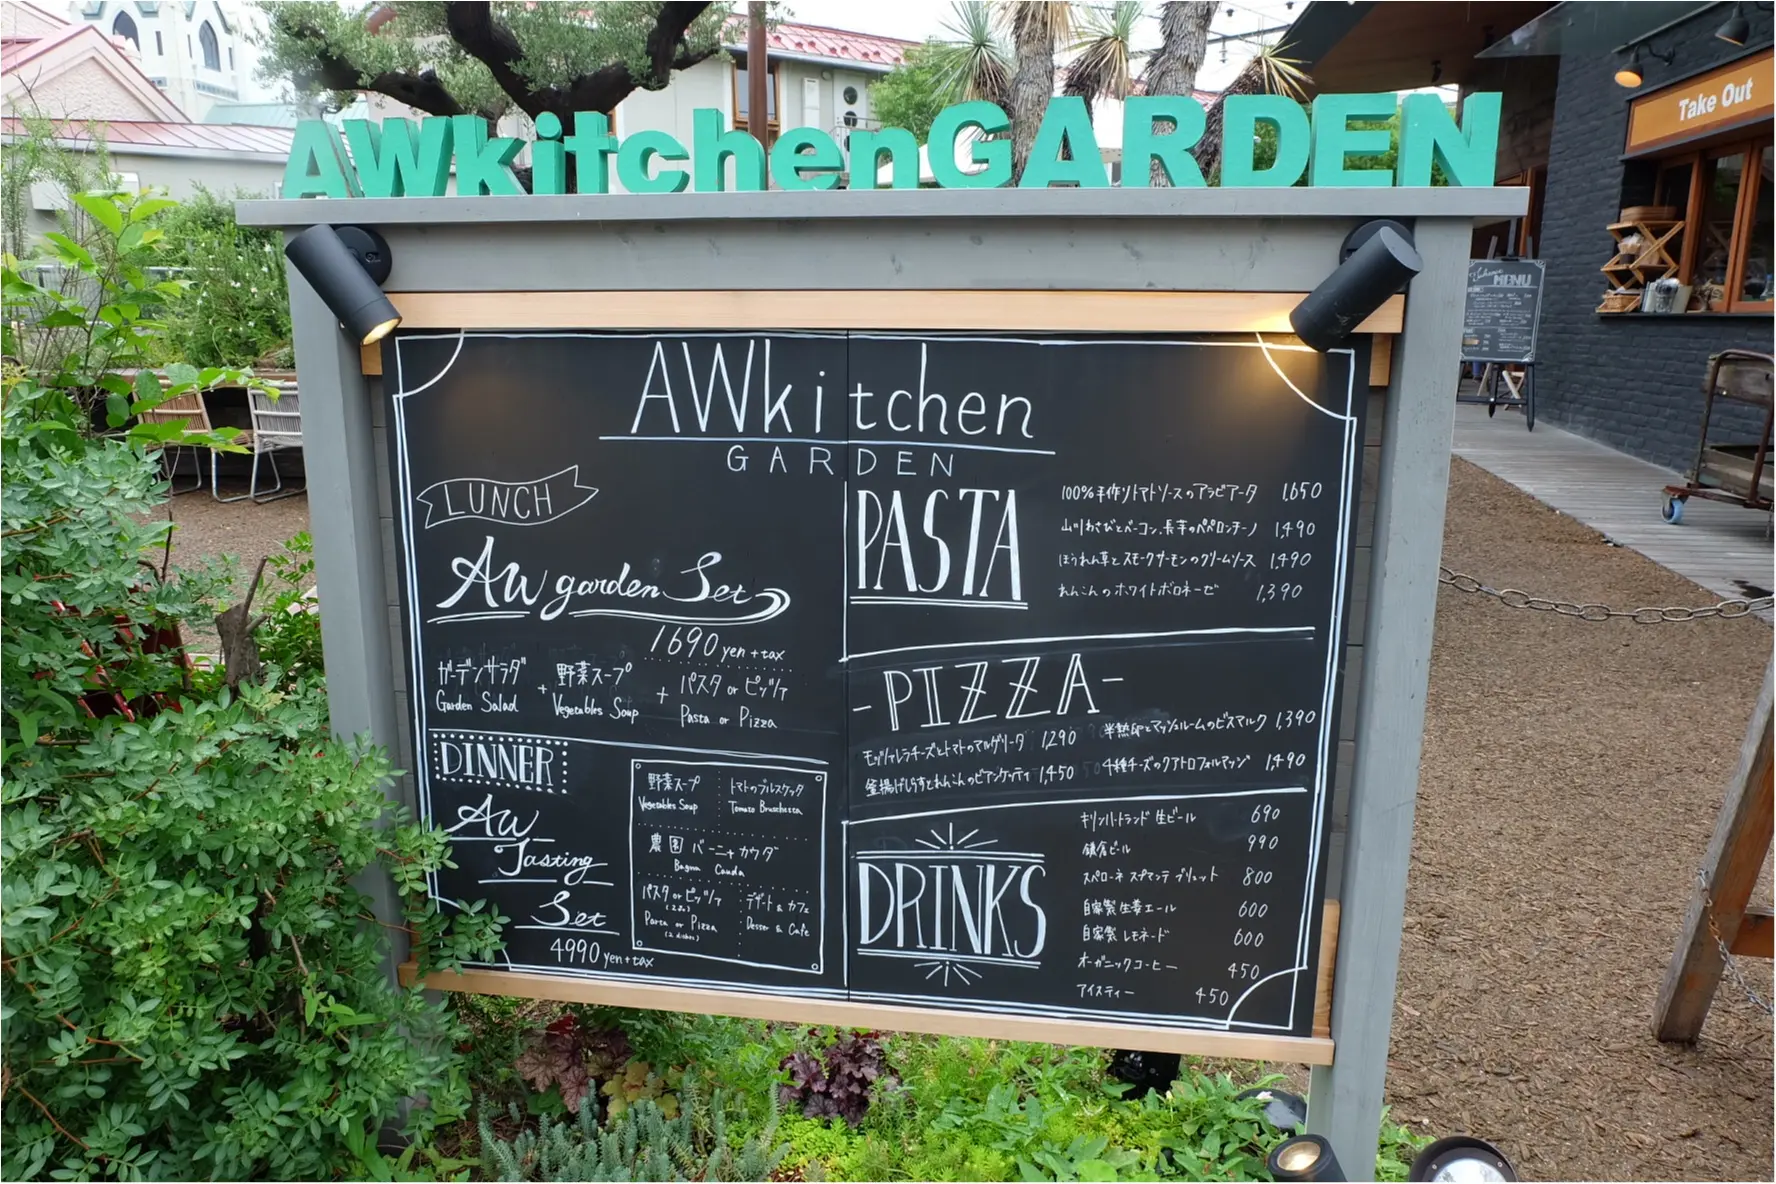 AWkitchenGARDEN
Take Out
MENU
AWkitchen
GARDEN
LUNCH
AW garden Set
1690 yen + tax
ガーデンサラダ + 野菜スープ + パスタ or ピッツァ
Garden Salad Vegetables Soup Pasta or Pizza
DINNER
AW
Tasting
Set
4990 yen + tax
野菜スープ トマトのブルスケッタ
Vegetables Soup Tomato Bruschetta
農園 バーニャカウダ
Bagna Cauda
パスタ or ピッツァ デザート & カフェ
Pasta or Pizza Desser & Cafe
(2 dishes)
PASTA
100%手作りトマトソースのアラビアータ 1,650
山川わさびとベーコン、長芋のペペロンチーノ 1,490
ほうれん草とスモークサーモンのクリームソース 1,490
れんこんのホワイトボロネーゼ 1,390
-PIZZA-
モッツァレラチーズとトマトのマルゲリータ 1,290
半熟卵とマッシュルームのビスマルク 1,390
釜揚げしらすとれんこんのビアンケッティ 1,450
4種チーズのクアトロフォルマッジ 1,490
DRINKS
キリンハートランド 生ビール 690
鎌倉ビール 990
スペローネ スプマンテ ブリュット 800
自家製生姜エール 600
自家製レモネード 600
オーガニックコーヒー 450
アイスティー 450